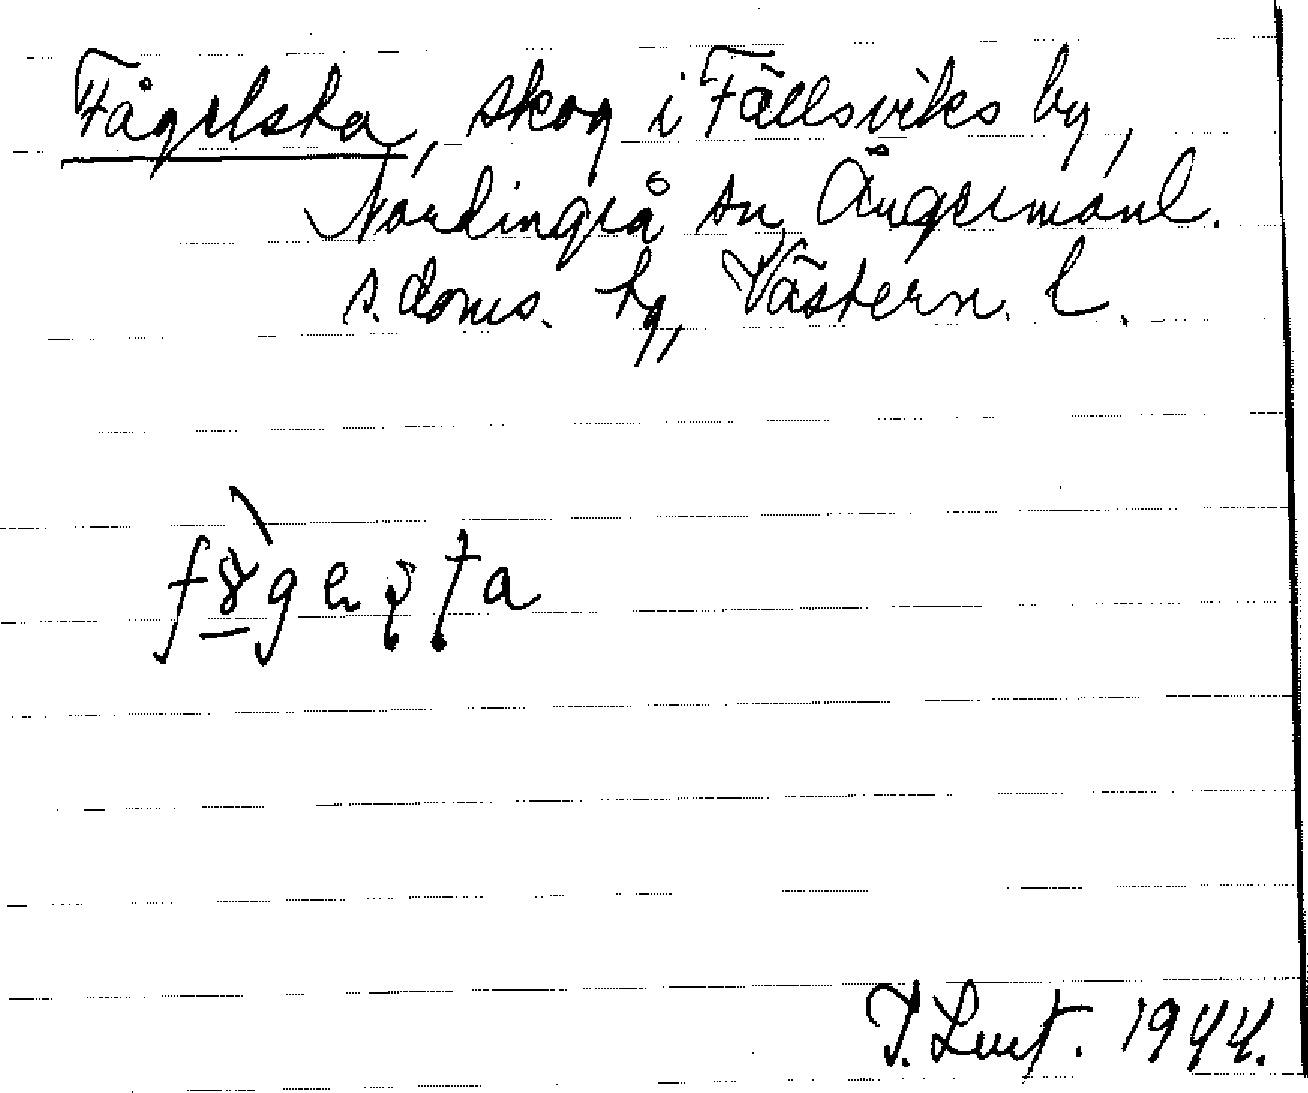 Fågelsta, skog i Fällsviks by,
Nordingrå sn, Ångermanl.
s. doms. hg, Västern. l.
1944.